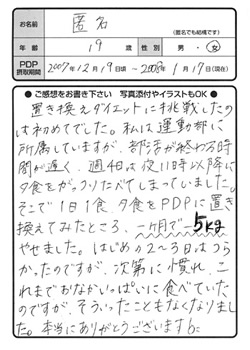 お名前 匿名
(匿名でも結構です)
年齢 19歳 性別 男・女
PDP摂取期間 2007年12月19日頃~2008年1月17日(現在)
●ご感想をお書き下さい 写真添付やイラストもOK●
置き換えダイエットに挑戦したの
は初めてでした。私は運動部に
所属していますが、部活が終わる時
間が遅く、週4日は夜11時以降に
夕食をがっつりたべてしまっていました。
そこで1日1食、夕食をPDPに置き
換えてみたところ、一ヶ月で一5kg
やせました。はじめの2~3日はつら
かったのですが、次第に慣れ、こ
れまでおなかいっぱいに食べていた
のですが、そういったこともなくなりまし
た。本当にありがとうございます